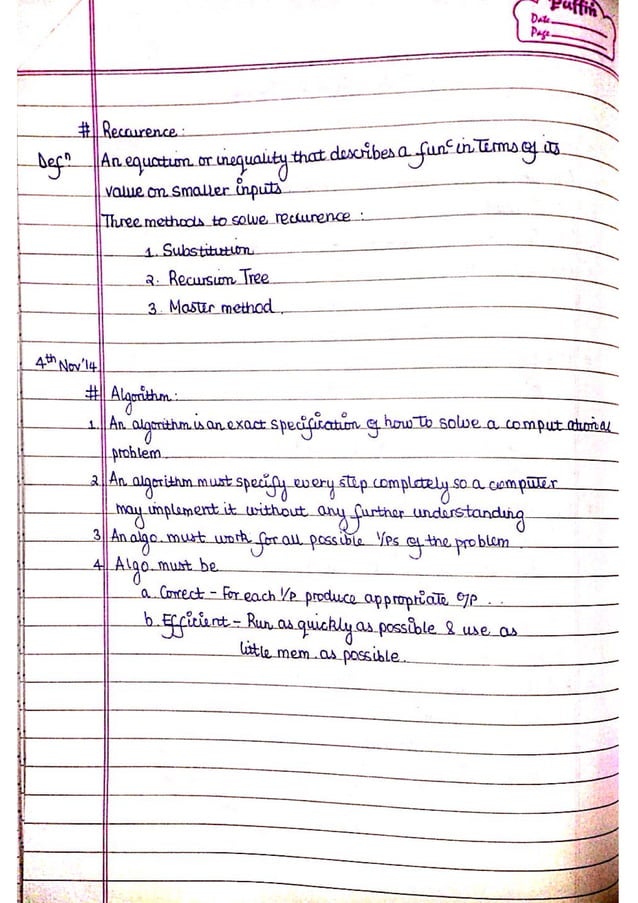 Puffin
Date
Page
# Reccurence :
Defⁿ An equation or inequality that describes a funᶜ in Terms of its
value on smaller inputs
Three methods to solve reccurence :
1. Substitution
2. Recursion Tree
3. Master method.
4th Nov'14
# Algorithm :
1. An algorithm is an exact specification of how to solve a computational
problem.
2 An algorithm must specify every step completely so a computer
may implement it without any further understanding
3 An algo. must work for all possible I/Ps of the problem.
4 Algo. must be
a. Correct - For each I/P produce appropriate O/P ..
b. Efficient - Run as quickly as possible & use as
little mem. as possible.